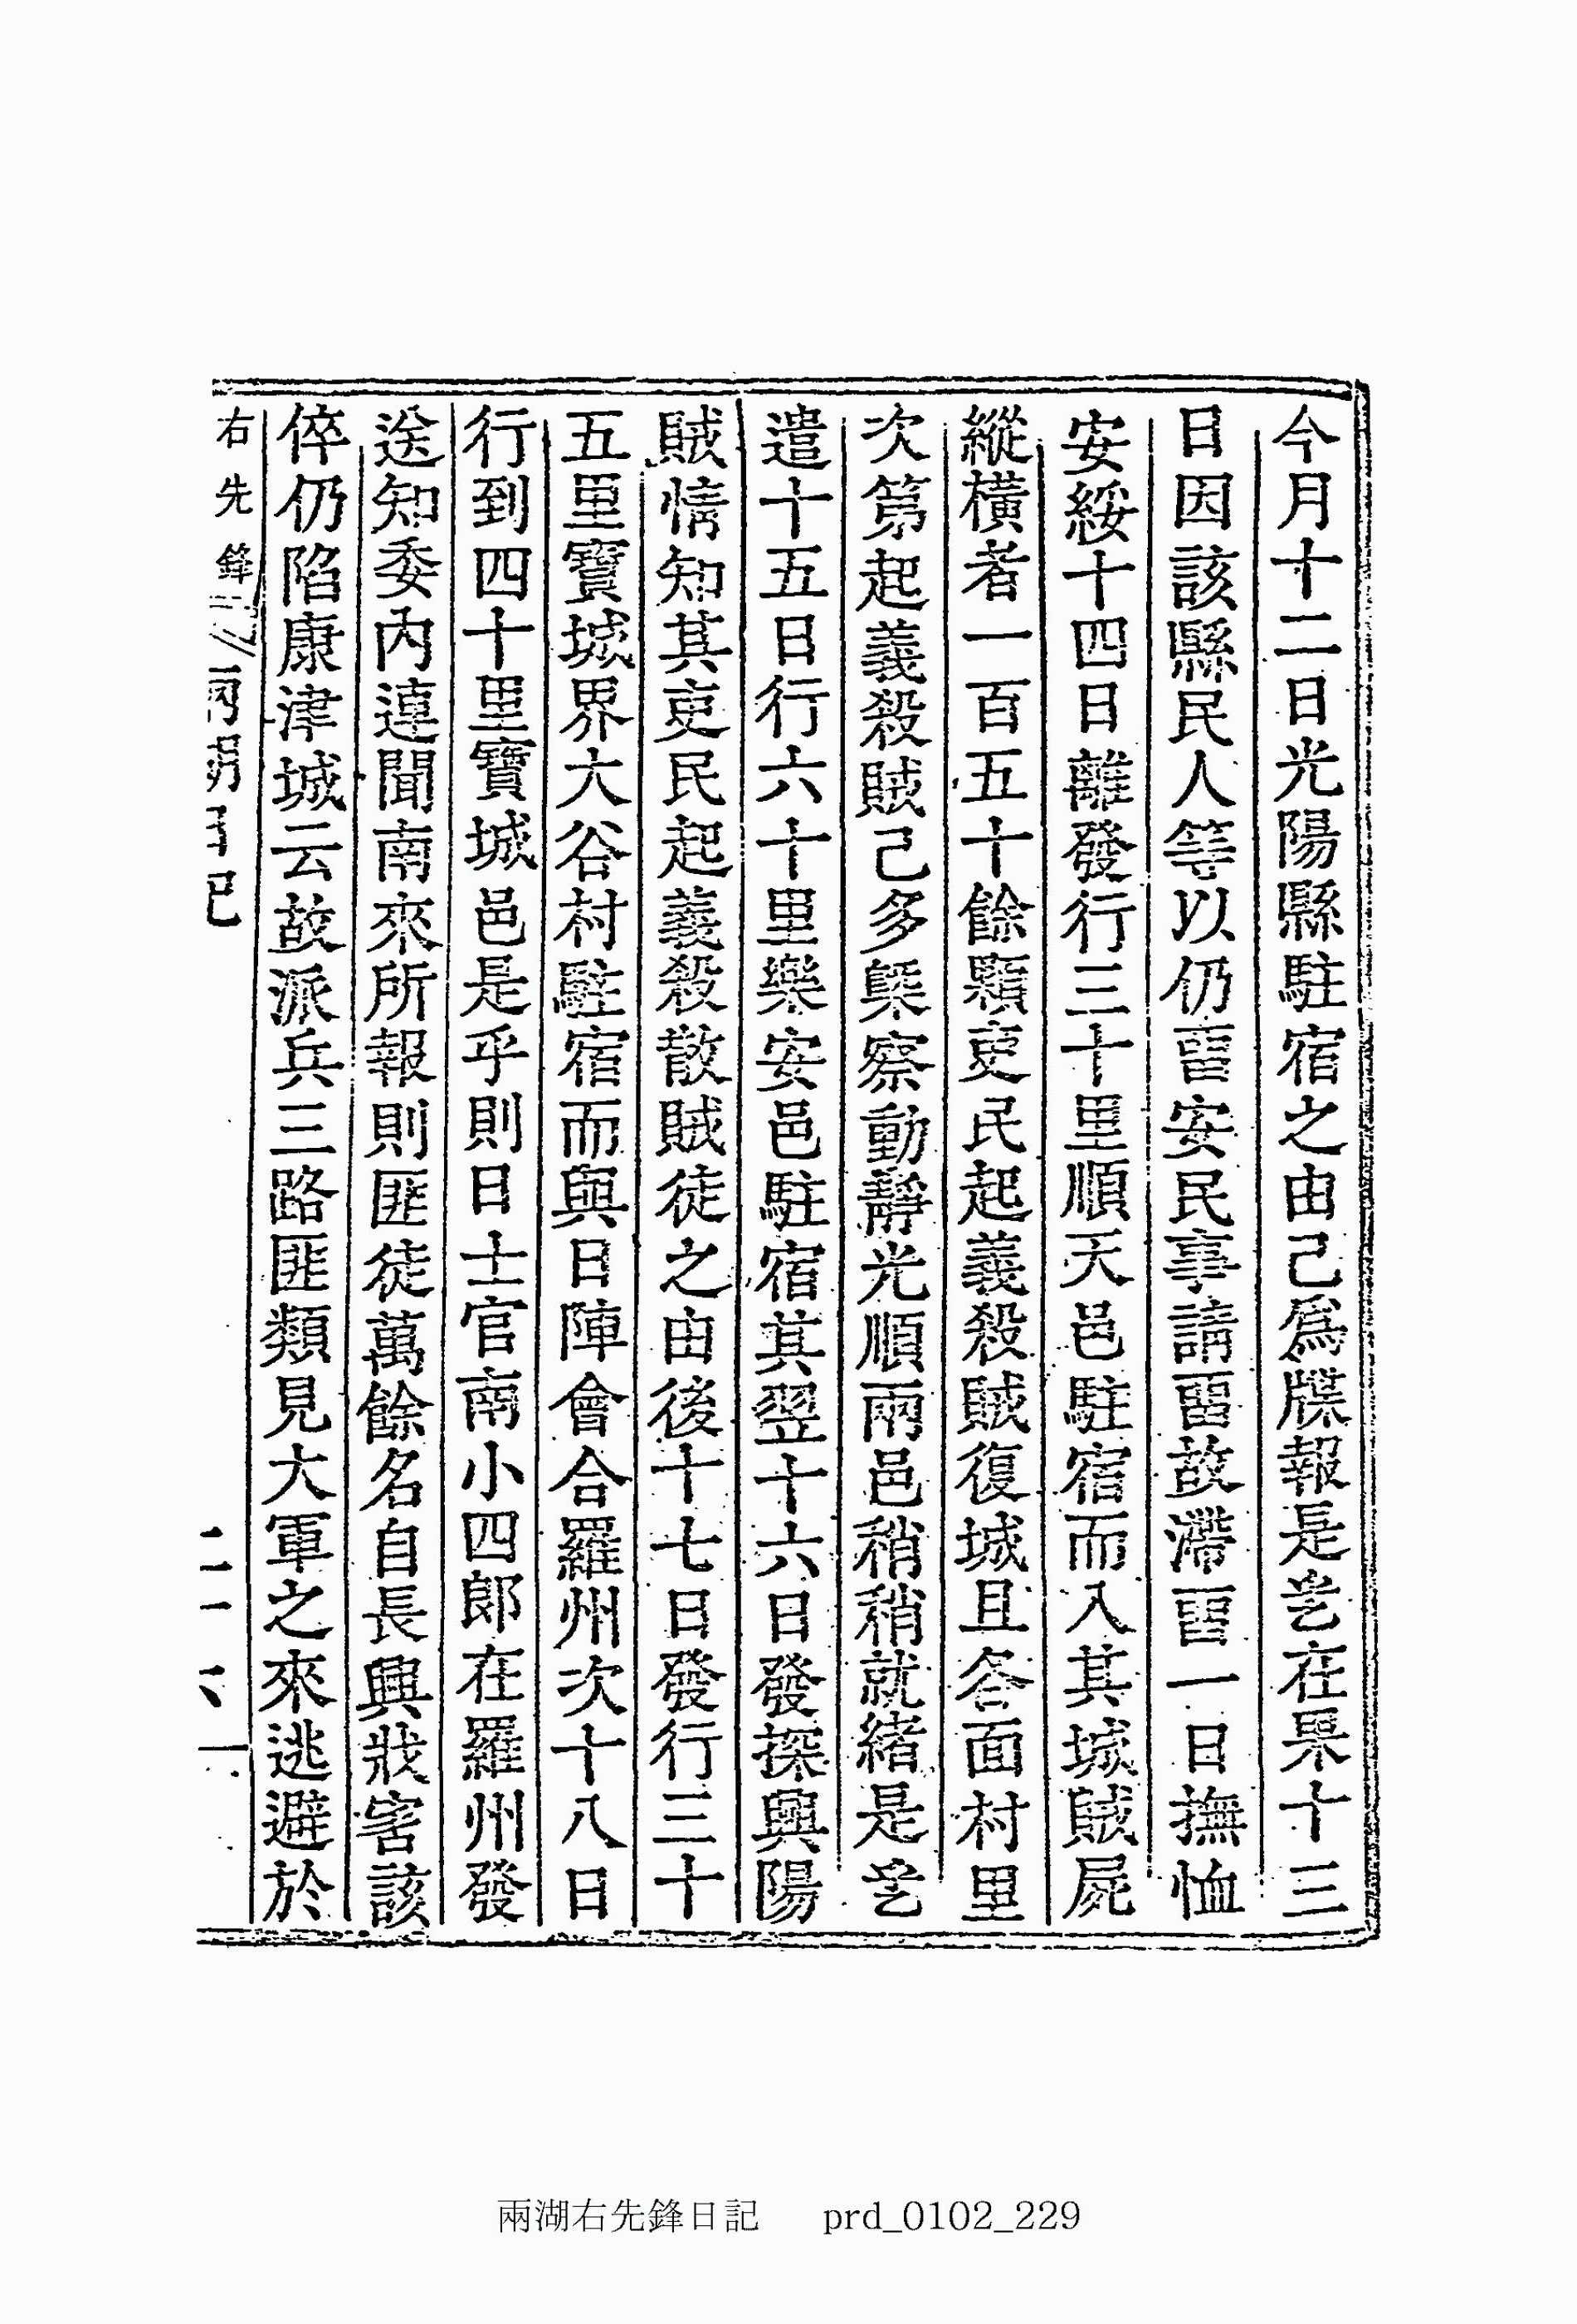 今月十二日光陽縣駐宿之由已爲牒報是乎在果十三
日因該縣民人等以仍畱安民事請畱故滯畱一日撫恤
安綏十四日離發行三十里順天邑駐宿而入其城賊屍
縱橫者一百五十餘顆吏民起義殺賊復城且各面村里
次第起義殺賊已多槩察動靜光順兩邑稍稍就緖是乎
遣十五日行六十里樂安邑駐宿其翌十六日發探興陽
賊情知其吏民起義殺散賊徒之由後十七日發行三十
五里寶城界大谷村駐宿而與日陣會合羅州次十八日
行到四十里寶城邑是乎則日士官南小四郎在羅州發
送知委內連聞南來所報則匪徒萬餘名自長興戕害該
倅仍陷康津城云故派兵三路匪類見大軍之來逃避於
右先鋒
兩湖日記
兩湖右先鋒日記 prd_0102_229